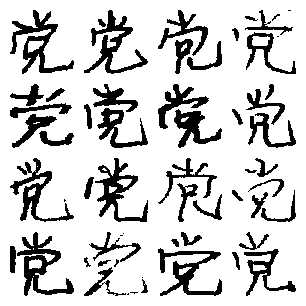 党党党党
党党党党
党党党党
党党党党